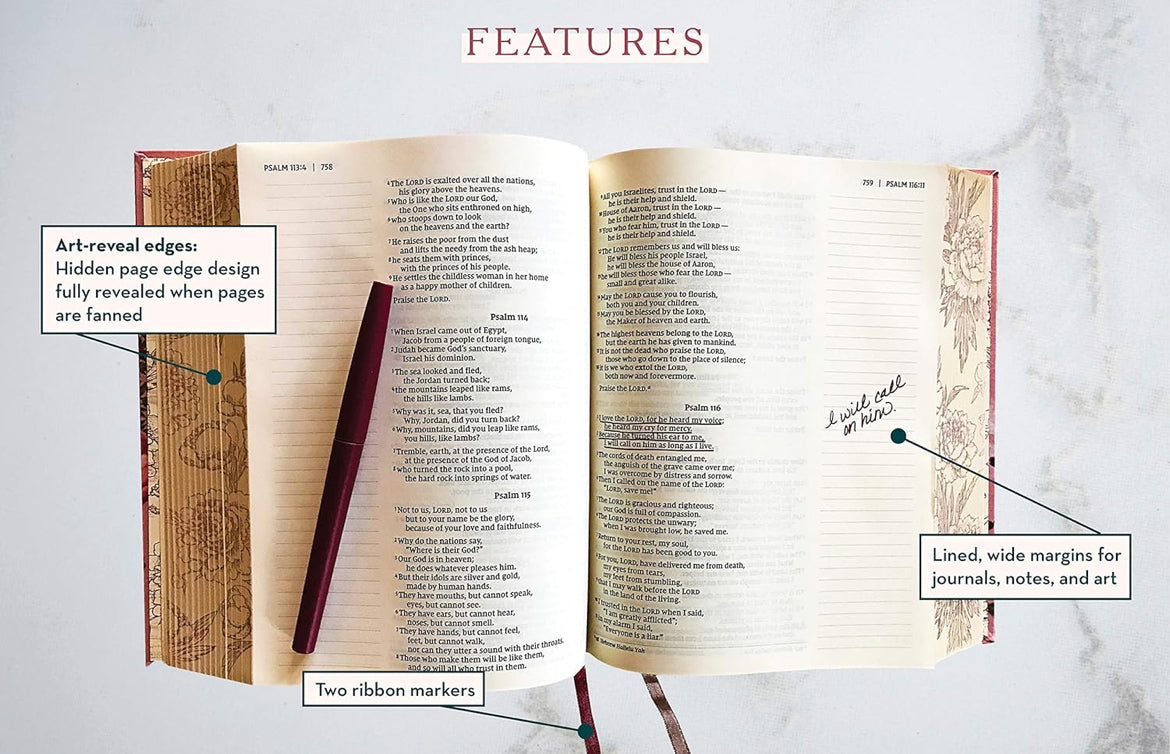 FEATURES
PSALM 113:4 | 758
⁴The LORD is exalted over all the nations,
his glory above the heavens.
⁵Who is like the LORD our God,
the One who sits enthroned on high,
⁶who stoops down to look
on the heavens and the earth?
⁷He raises the poor from the dust
and lifts the needy from the ash heap;
⁸he seats them with princes,
with the princes of his people.
⁹He settles the childless woman in her home
as a happy mother of children.
Praise the LORD.
Psalm 114
¹When Israel came out of Egypt,
Jacob from a people of foreign tongue,
²Judah became God's sanctuary,
Israel his dominion.
³The sea looked and fled,
the Jordan turned back;
⁴the mountains leaped like rams,
the hills like lambs.
⁵Why was it, sea, that you fled?
Why, Jordan, did you turn back?
⁶Why, mountains, did you leap like rams,
you hills, like lambs?
⁷Tremble, earth, at the presence of the Lord,
at the presence of the God of Jacob,
⁸who turned the rock into a pool,
the hard rock into springs of water.
Psalm 115
¹Not to us, LORD, not to us
but to your name be the glory,
because of your love and faithfulness.
²Why do the nations say,
"Where is their God?"
³Our God is in heaven;
he does whatever pleases him.
⁴But their idols are silver and gold,
made by human hands.
⁵They have mouths, but cannot speak,
eyes, but cannot see.
⁶They have ears, but cannot hear,
noses, but cannot smell.
⁷They have hands, but cannot feel,
feet, but cannot walk,
nor can they utter a sound with their throats.
⁸Those who make them will be like them,
and so will all who trust in them.
759 | PSALM 116:11
⁹All you Israelites, trust in the LORD—
he is their help and shield.
¹⁰House of Aaron, trust in the LORD—
he is their help and shield.
¹¹You who fear him, trust in the LORD—
he is their help and shield.
¹²The LORD remembers us and will bless us:
He will bless his people Israel,
he will bless the house of Aaron,
¹³he will bless those who fear the LORD—
small and great alike.
¹⁴May the LORD cause you to flourish,
both you and your children.
¹⁵May you be blessed by the LORD,
the Maker of heaven and earth.
¹⁶The highest heavens belong to the LORD,
but the earth he has given to mankind.
¹⁷It is not the dead who praise the LORD,
those who go down to the place of silence;
¹⁸it is we who extol the LORD,
both now and forevermore.
Praise the LORD.ᵃ
Psalm 116
¹I love the LORD, for he heard my voice;
he heard my cry for mercy.
²Because he turned his ear to me,
I will call on him as long as I live.
³The cords of death entangled me,
the anguish of the grave came over me;
I was overcome by distress and sorrow.
⁴Then I called on the name of the LORD:
"LORD, save me!"
⁵The LORD is gracious and righteous;
our God is full of compassion.
⁶The LORD protects the unwary;
when I was brought low, he saved me.
⁷Return to your rest, my soul,
for the LORD has been good to you.
⁸For you, LORD, have delivered me from death,
my eyes from tears,
my feet from stumbling,
⁹that I may walk before the LORD
in the land of the living.
¹⁰I trusted in the LORD when I said,
"I am greatly afflicted";
¹¹in my alarm I said,
"Everyone is a liar."
Hebrew Hallelu Yah
I will call
on him.
Art-reveal edges:
Hidden page edge design
fully revealed when pages
are fanned
Lined, wide margins for
journals, notes, and art
Two ribbon markers